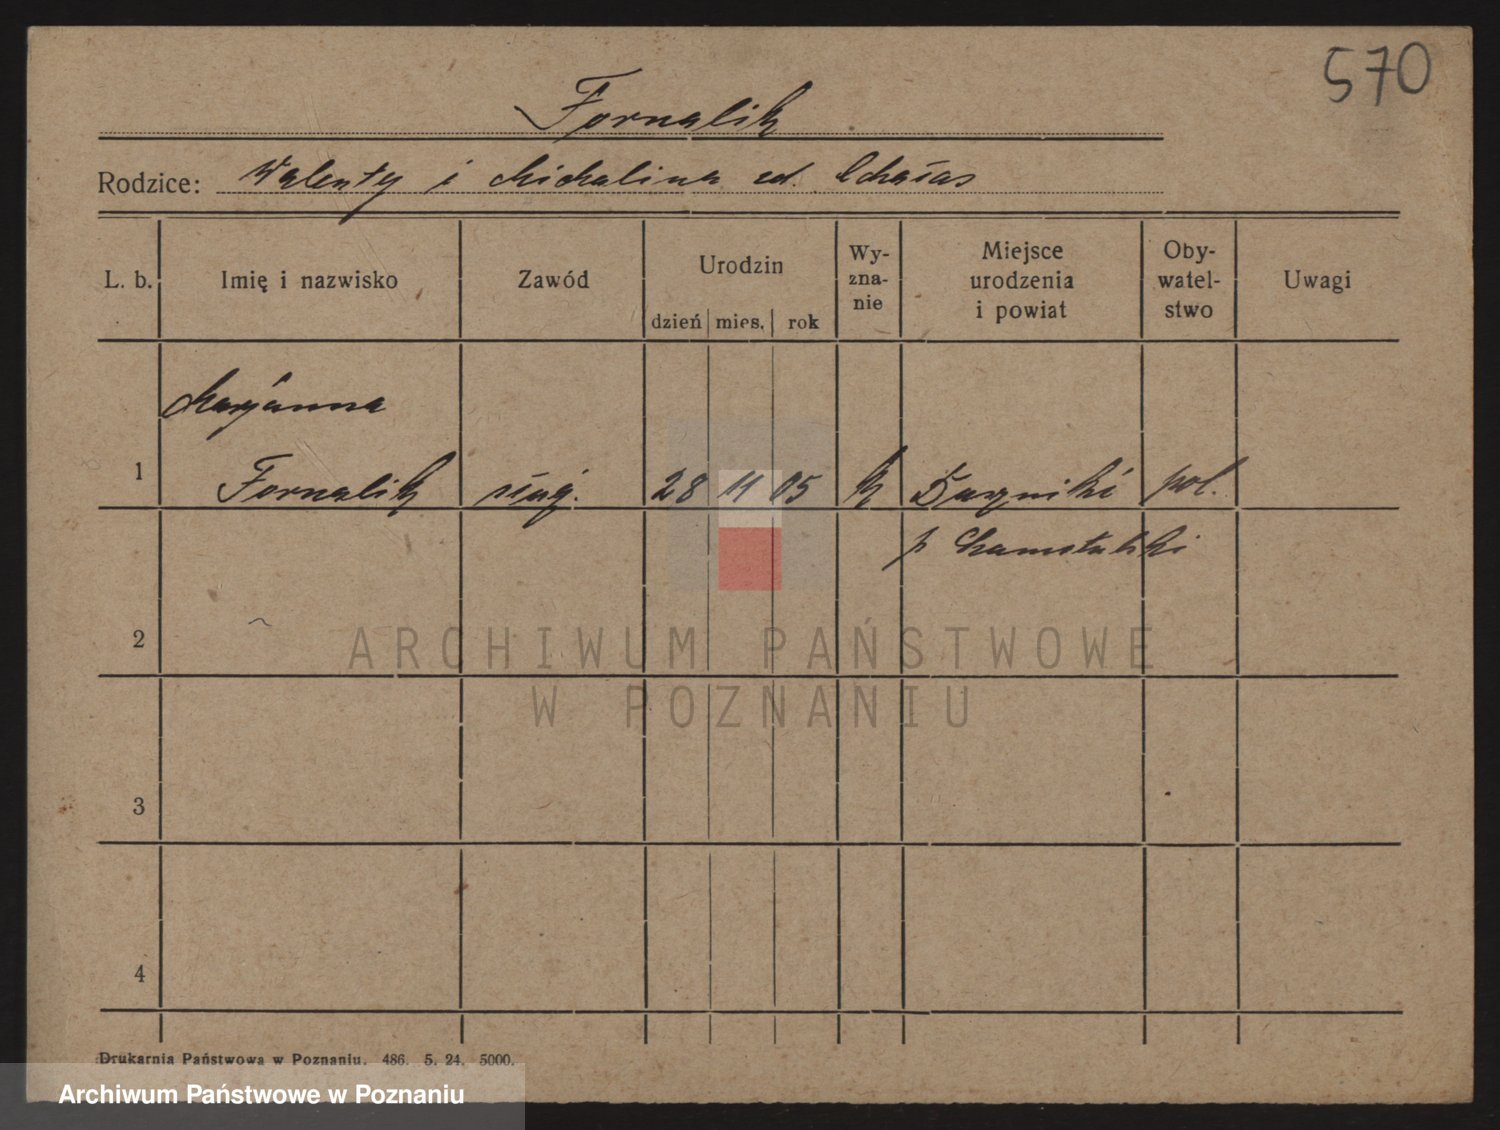 570
Fornalik
Rodzice: Walenty i Michalina zd. Chałas
L. b. Imię i nazwisko Zawód Urodzin dzień mies. rok Wy-zna-nie Miejsce urodzenia i powiat Oby-watel-stwo Uwagi
Maryanna
1 Fornalik służ. 28 11 05 k Duszniki pol.
p Szamotulski
2
3
4
ARCHIWUM PAŃSTWOWE
W POZNANIU
Drukarnia Państwowa w Poznaniu. 486. 5. 24. 5000.
Archiwum Państwowe w Poznaniu